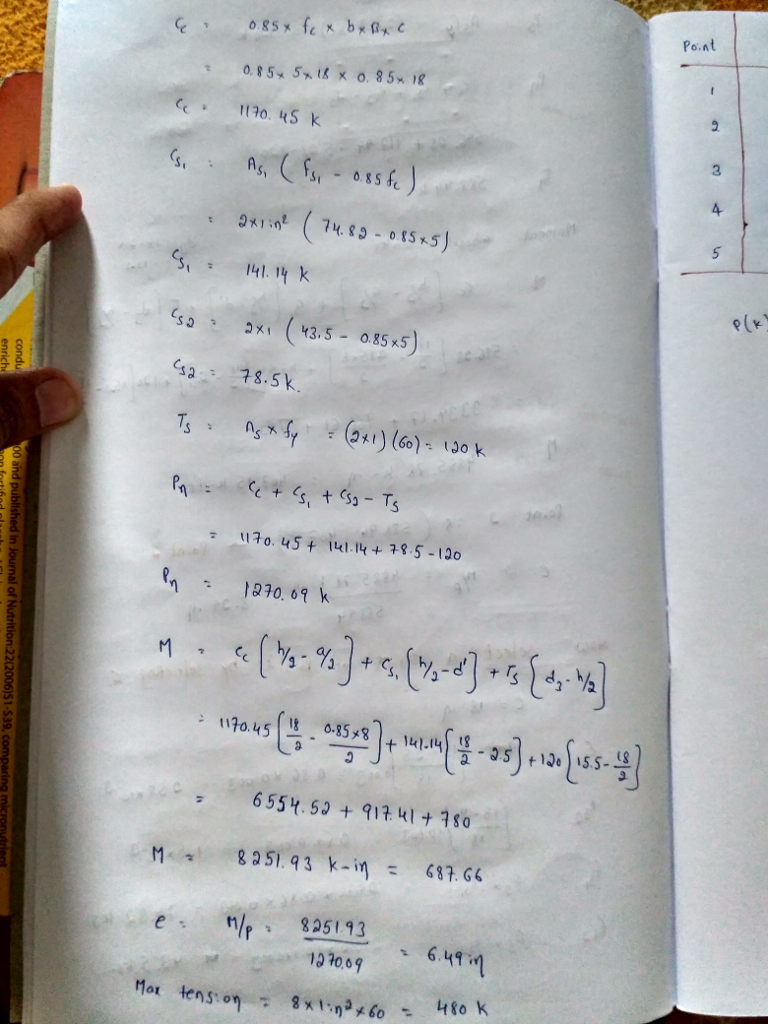 Cc = 0.85 x fc x b x β x c
= 0.85 x 5 x 18 x 0.85 x 18
Cc = 1170.45 k
Cs1 = As1 ( fs1 - 0.85 fc )
= 2x1 in² ( 74.82 - 0.85x5)
Cs1 = 141.14 k
Cs2 = 2x1 ( 43.5 - 0.85x5)
Cs2 = 78.5k.
Ts = As x fy = (2x1) (60) = 120 k
Pn = Cc + Cs1 + Cs2 - Ts
= 1170.45 + 141.14 + 78.5 - 120
Pn = 1270.09 k
M = Cc [ h/2 - a/2 ] + Cs1 [ h/2 - d' ] + Ts [ d3 - h/2 ]
= 1170.45 [ 18/2 - 0.85x8/2 ] + 141.14 [ 18/2 - 2.5 ] + 120 [ 15.5 - 18/2 ]
= 6554.52 + 917.41 + 780
M = 8251.93 k-in = 687.66
e = M/p = 8251.93/1270.09 = 6.49 in
Max tension = 8 x 1 in² x 60 = 480 k
Point
1
2
3
4
5
P(k)
00 and published in Journal of Nutrition:22(2006)S1-S39, comparing micronutrient